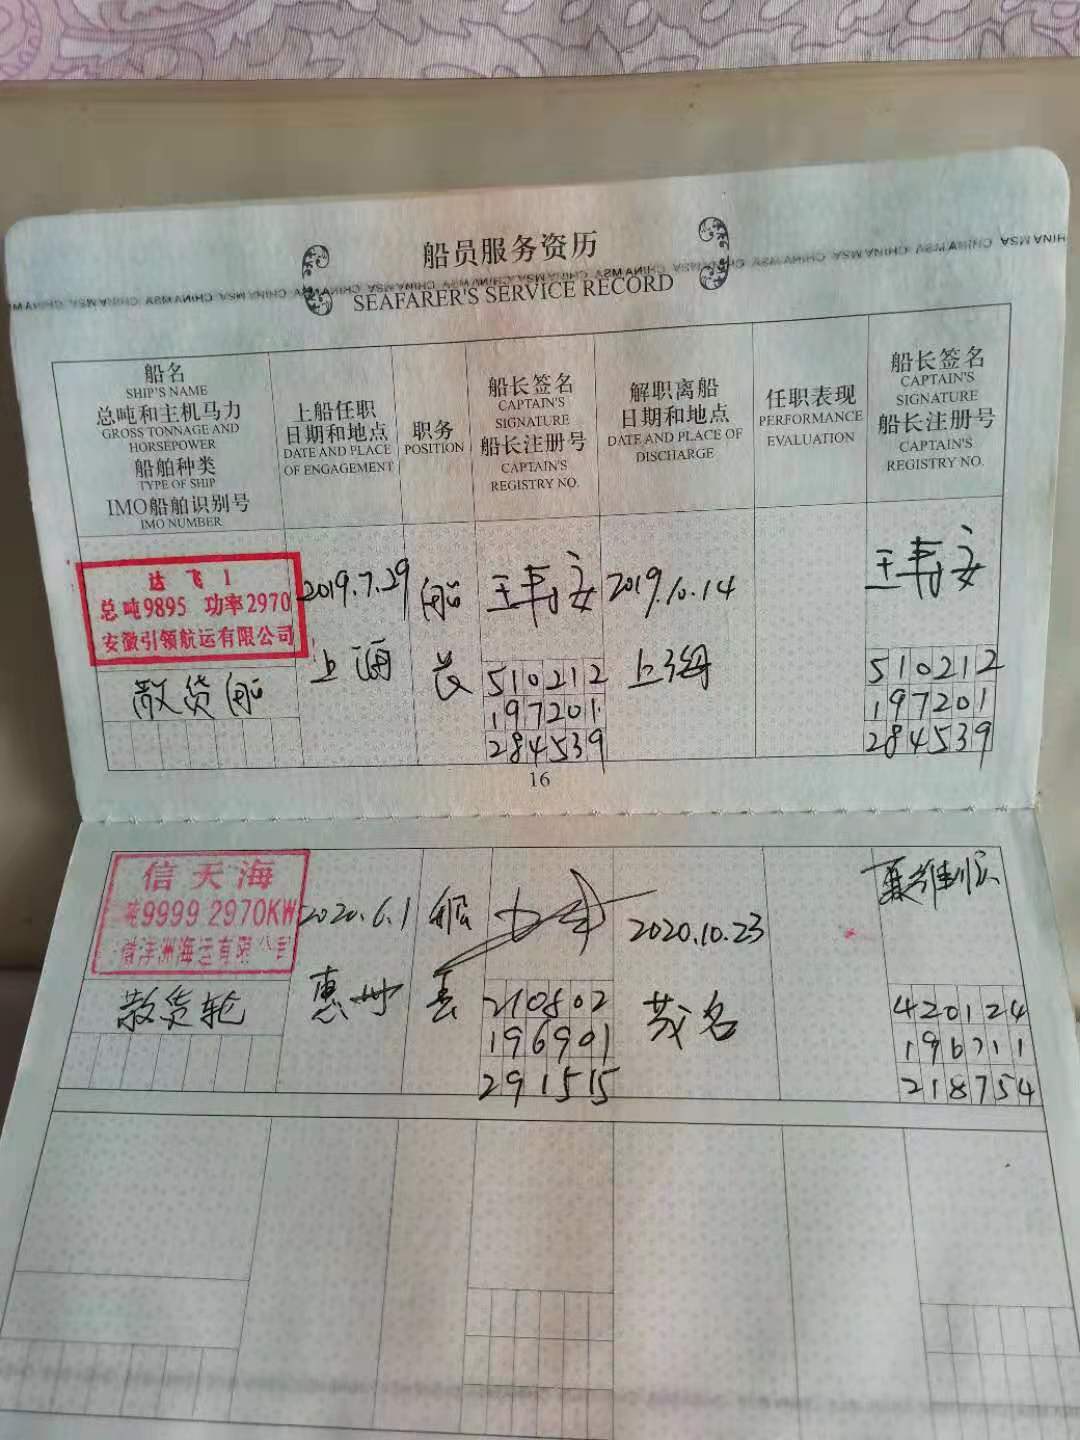 船员服务资历
CHINA MSA CHINA MSA CHINA MSA CHINA MSA CHINA MSA CHINA MSA CHINA MSA
SEAFARER'S SERVICE RECORD
船名
SHIP'S NAME
总吨和主机马力
GROSS TONNAGE AND
HORSEPOWER
船舶种类
TYPE OF SHIP
IMO船舶识别号
IMO NUMBER
上船任职
日期和地点
DATE AND PLACE
OF ENGAGEMENT
职务
POSITION
船长签名
CAPTAIN'S
SIGNATURE
船长注册号
CAPTAIN'S
REGISTRY NO.
解职离船
日期和地点
DATE AND PLACE OF
DISCHARGE
任职表现
PERFORMANCE
EVALUATION
船长签名
CAPTAIN'S
SIGNATURE
船长注册号
CAPTAIN'S
REGISTRY NO.
达飞1
总吨9895 功率2970
安徽引领航运有限公司
散货船
2019.7.29
上海
船
长
王寿安
510212
197201
284539
2019.10.14
上海
王寿安
510212
197201
284539
16
信天海
吨9999 2970KW
洋洲海运有限公司
散货轮
2020.6.1
惠州
船
长
210802
196901
291515
2020.10.23
茂名
420124
196711
218754